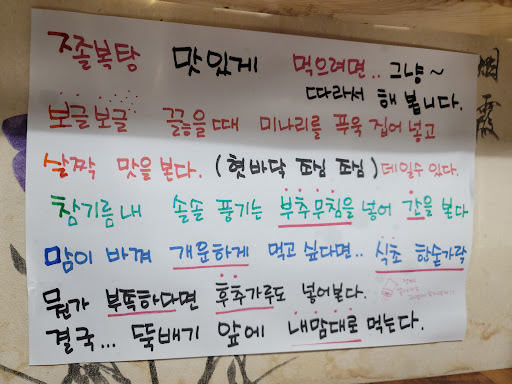 즈졸복탕 맛있게 먹으려면.. 그냥~
따라서 해 봅니다.
보글보글 끓을때 미나리를 푸욱 집어 넣고
살짝 맛을 본다. (혓바닥 조심 조심) 데일수 있다.
참기름내 솔솔 풍기는 부추무침을 넣어 간을 본다
맘이 바껴 개운하게 먹고 싶다면.. 식초 한술가락
뭔가 부족하다면 후추가루도 넣어본다.
결국... 뚝배기 앞에 내맘대로 먹는다.
烟
霞